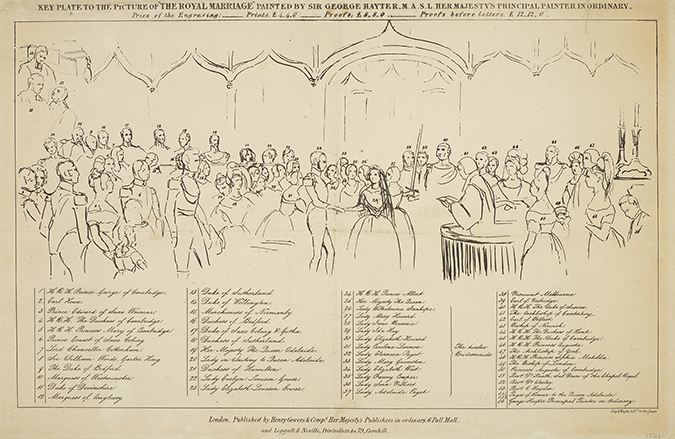 KEY PLATE TO THE PICTURE OF "THE ROYAL MARRIAGE" PAINTED BY SIR GEORGE HAYTER, M.A.S.L. HER MAJESTY'S PRINCIPAL PAINTER IN ORDINARY.
Price of the Engraving: Prints, £4,4,0 Proofs, £8,8,0 Proofs before Letters, £12,12,0.
1 H.R.H. Prince George of Cambridge
2 Earl Howe
3 Prince Edward of Saxe Weimar
4 H.R.H. The Duchess of Cambridge
5 H.R.H. Princess Mary of Cambridge
6 Prince Ernest of Saxe Coburg
7 Lord Chancellor Cottenham
8 Sir William Woods Garter King
9 The Duke of Bedford
10 Marquess of Westminster
11 Duke of Devonshire
12 Marquess of Anglesey
13 Duke of Sutherland
14 Duke of Wellington
15 Marchioness of Normanby
16 Duchess of Bedford
17 Duke of Saxe Coburg & Gotha
18 Duchess of Sutherland
19 Her Majesty The Queen Adelaide
20 Lady in Waiting to Queen Adelaide
21 Duchess of Hamilton
22 Lady Evelyn Leveson Gower
23 Lady Elizabeth Leveson Gower
24 H.R.H. Prince Albert
25 Her Majesty The Queen
26 Lady Wilhelmina Stanhope
27 Lady Mary Howard
28 Lady
29 Lady Ida Hay
30 Lady Elizabeth Howard
31 Lady Caroline Lennox
32 Lady Eleanora Paget
33 Lady Mary Grimston
34 Lady Elizabeth West
35 Lady Fanny Cowper
36 Lady Sarah Villiers
37 Lady Adelaide Paget
The twelve
Bridesmaids
38 Viscount Melbourne
39 Earl of Uxbridge
40 H.R.H. The Duke of Sussex
41 The Archbishop of Canterbury
42 Earl of Belfast
43 Bishop of Norwich
44 H.R.H. The Duchess of Kent
45 H.R.H. The Duke of Cambridge
46 H.R.H. Princess Augusta
47 The Archbishop of York
48 H.R.H. Princess Sophia Matilda
49 The Bishop of London
50 Princess Augusta of Cambridge
51 Dean of the Chapel Royal
52 Wesley
53
54 Pages of Honor to the Queen Adelaide
55 George Hayter Principal Painter in Ordinary
London, Published by Henry Graves & Compy. Her Majesty's Publishers in ordinary, 6 Pall Mall,
and Leggatt & Neville, Printsellers &c 79, Cornhill.